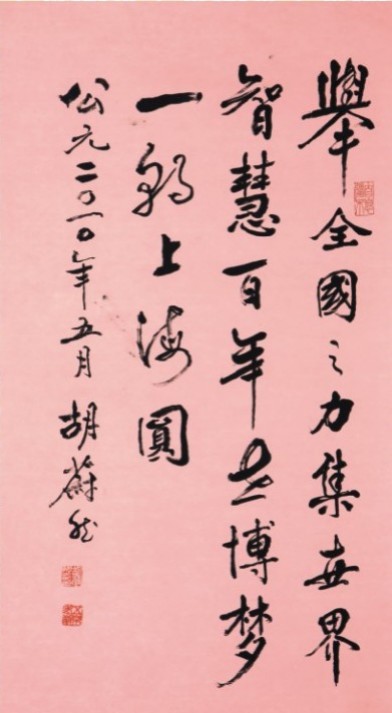 舉全國之力集世界
智慧百年世博梦
一朝上海圓
公元二〇一〇年五月 胡蔚然